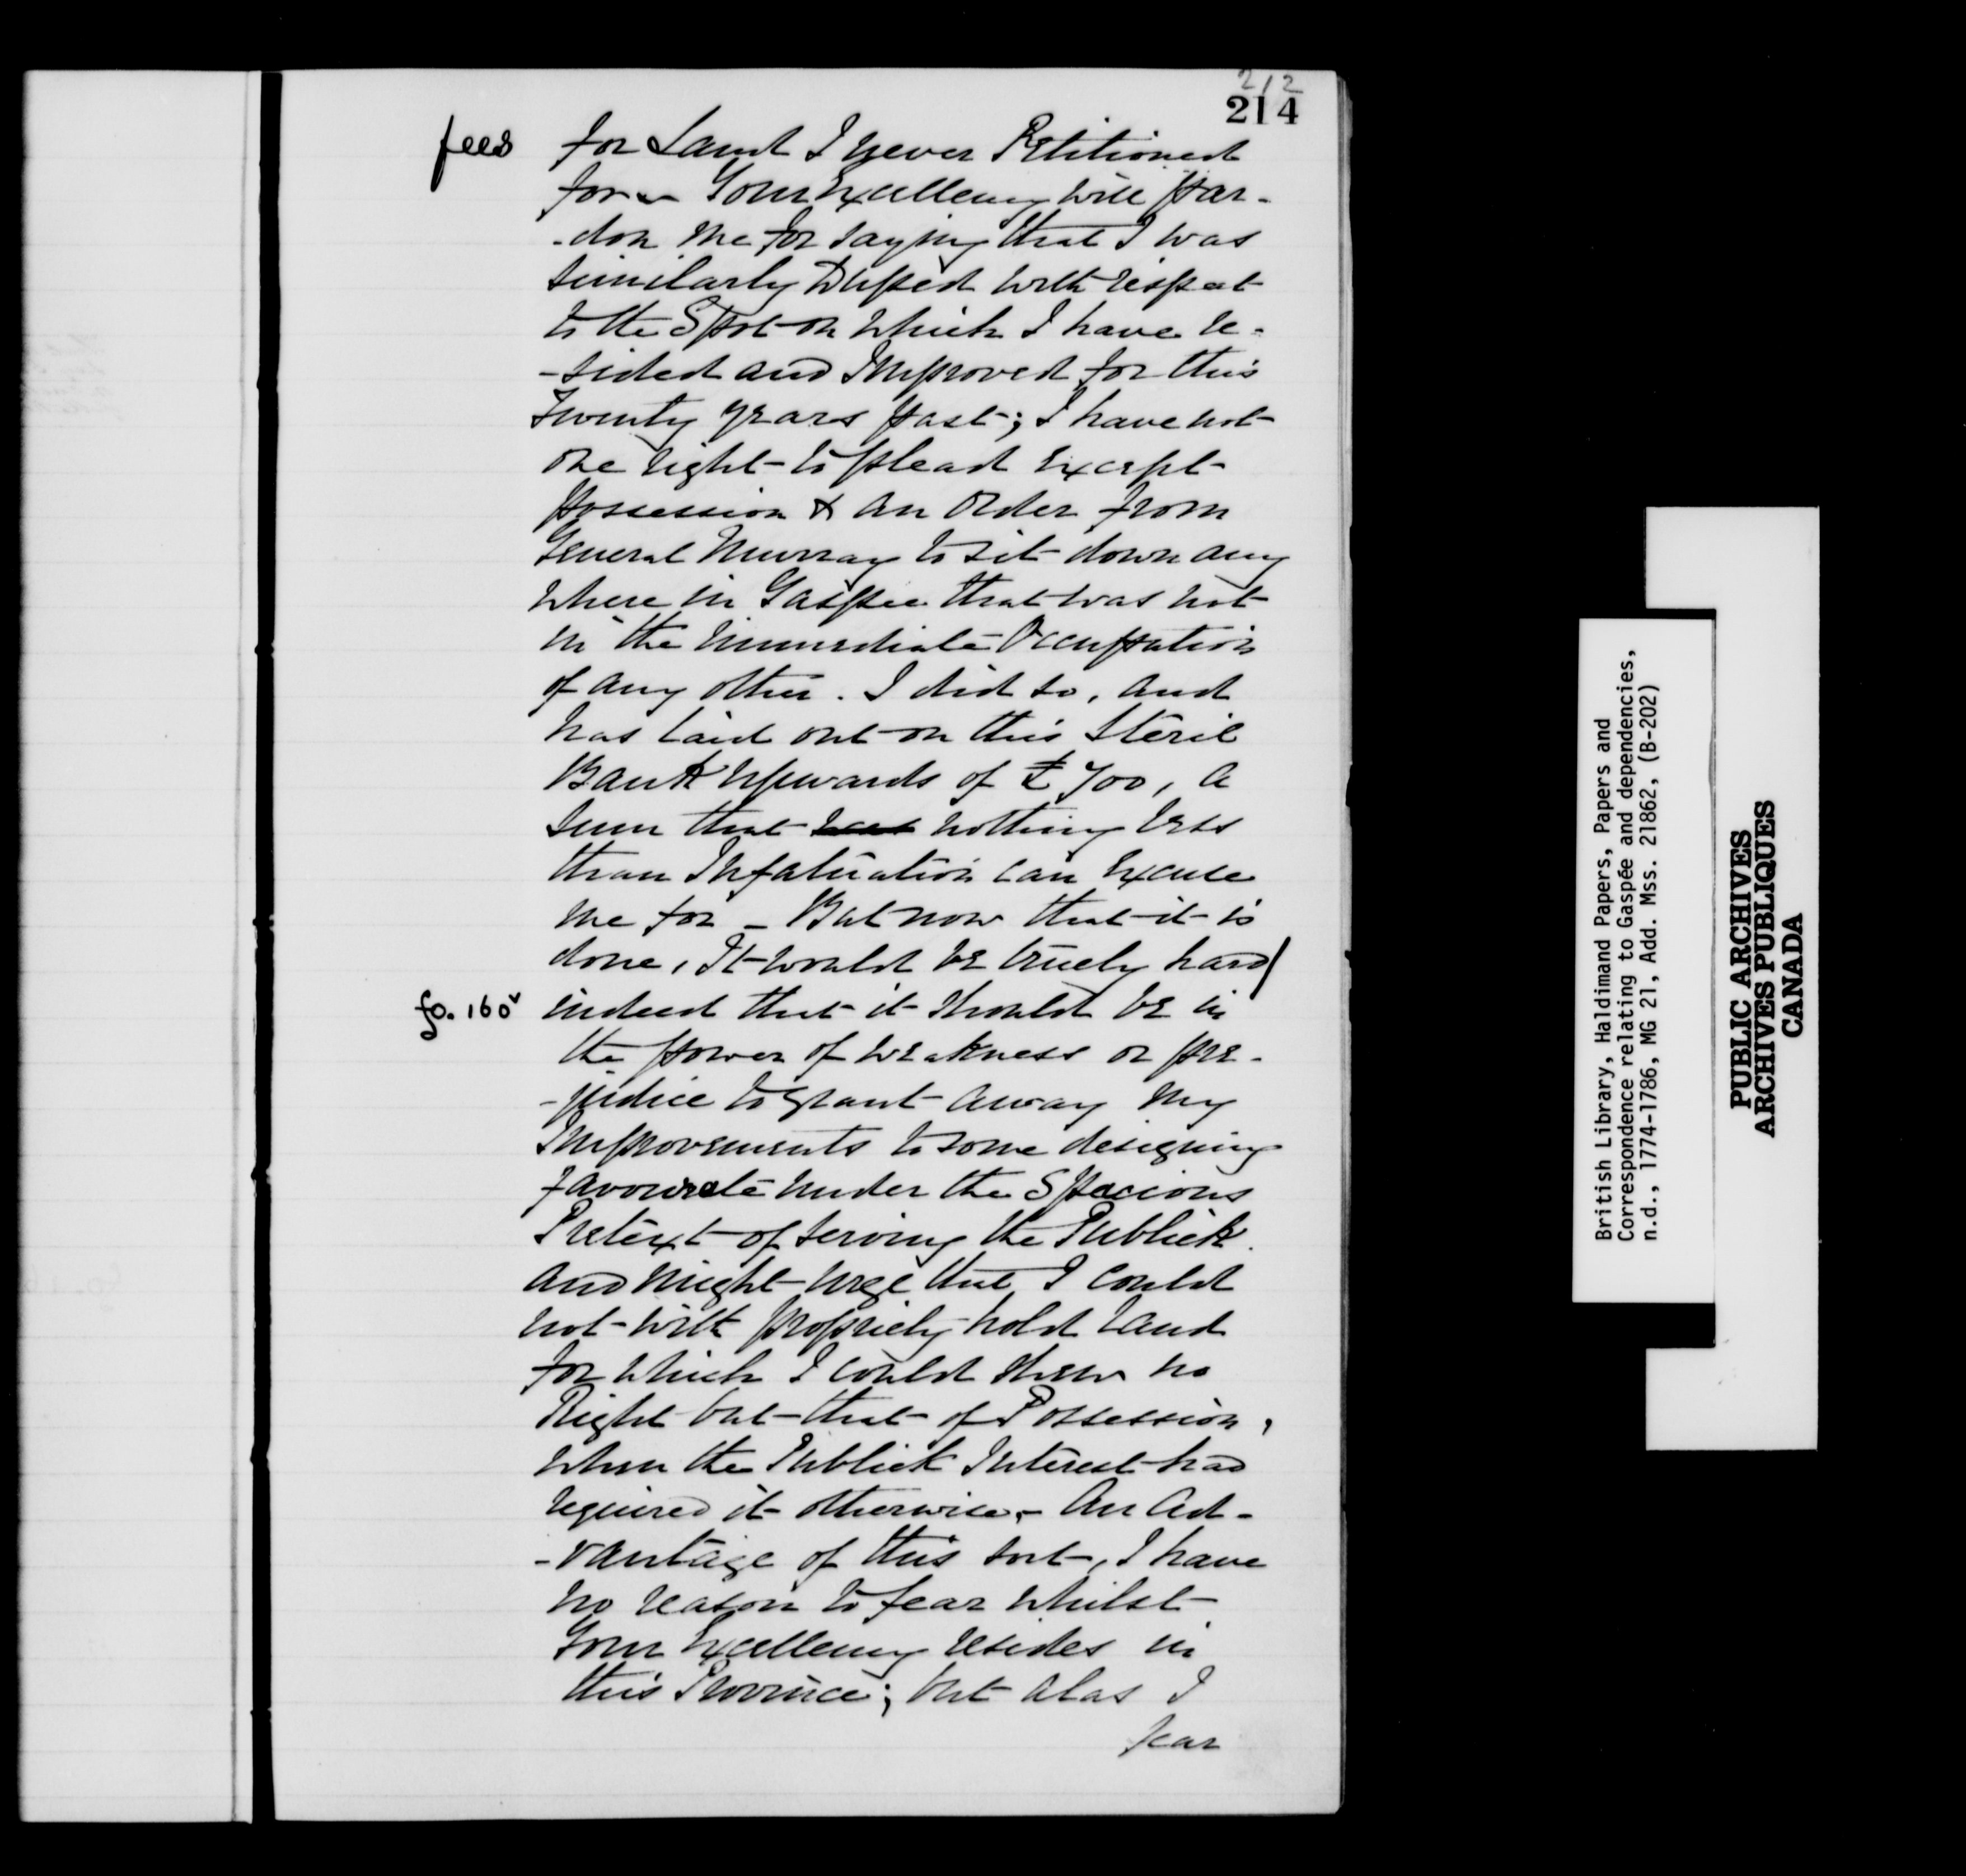 212
214
fees for Land I never Petitioned
for - Your Excellency will Par-
-don me for saying that I was
similarly Duped with respect
to the Spot on which I have re-
-sided and Improved for this
Twenty years past; I have not
one right to plead Except
Possession & an Order from
General Murray to sit down any
where in Gaspee that was not
in the immediate Occupation
of any other. I did so, and
has laid out on this Steril
Bank upwards of £700, a
Sum that was nothing less
than Infatuation can Excuse
me for - But now that it is
done, It would be truely hard/
fo. 160v indeed that it should be in
the power of weakness or pre-
-judice to grant away my
Improvements to some designing
favourite under the Specious
Pretext of serving the Publick
and might urge that I could
not with propriety hold Land
for which I could shew no
Right but that of Possession,
when the Publick Interest had
required it otherwise, - An Ad-
-vantage of this sort, I have
no reason to fear whilst
Your Excellency resides in
this Province; but alas I
fear
British Library, Haldimand Papers, Papers and
Correspondence relating to Gaspée and dependencies,
n.d., 1774-1786, MG 21, Add. Mss. 21862, (B-202)
PUBLIC ARCHIVES
ARCHIVES PUBLIQUES
CANADA